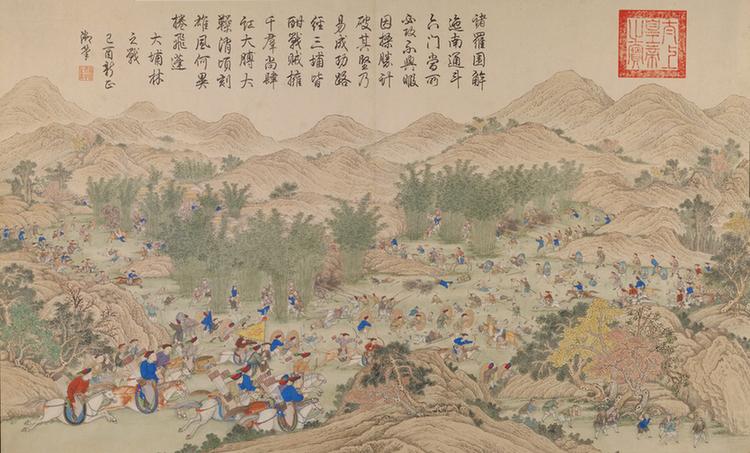 諸羅圍解
迤南通斗
六門當所
必攻不與暇
因操勝計
破其堅乃
易成功路
經三埔皆
酣戰賊擁
千群尚肆
大膊大
清頃刻
雄風何異
捲飛蓬
大埔林
之戰
己酉新正
御筆
太上皇帝之寶